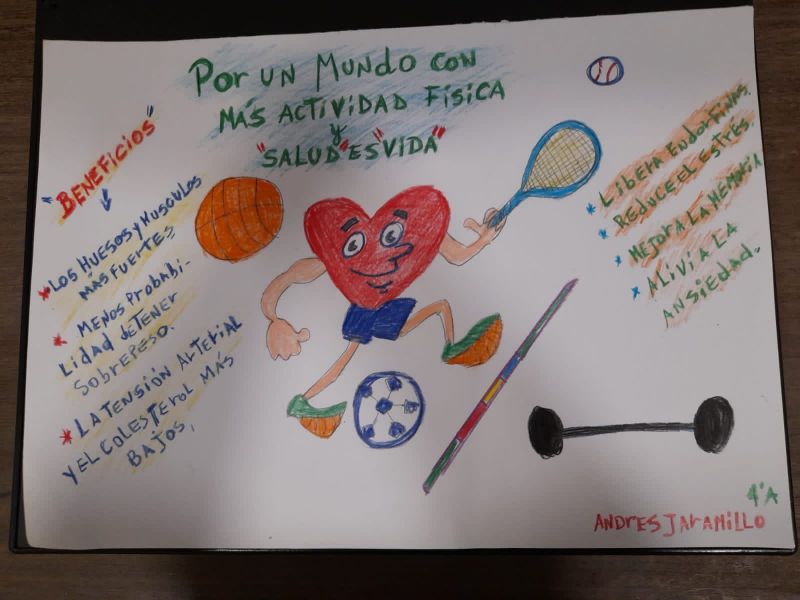 POR UN MUNDO CON
MÁS ACTIVIDAD FÍSICA
y
"SALUD"ES"VIDA"
"BENEFICIOS"
* LOS HUESOS Y MUSCULOS
MÁS FUERTES
* MENOS PROBABI-
LIDAD DE TENER
SOBREPESO.
* LA TENSIÓN ARTERIAL
Y EL COLESTEROL MÁS
BAJOS,
* LIBERA ENDORFINAS
REDUCE EL ESTRÉS.
* MEJORA LA MEMORIA
* ALIVIA LA
ANSIEDAD.
4°A
ANDRES JARAMILLO